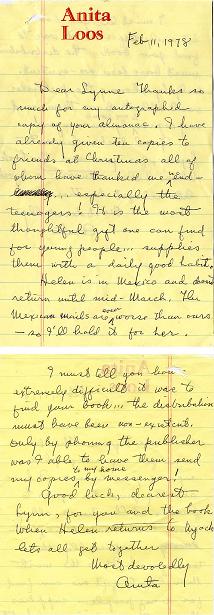 Anita
Loos
Feb 11, 1978
Dear Lynne Thanks so
much for my autographed
copy of your almanac. I have
already given ten copies to
friends at Christmas all of
whom have thanked me
... especially the
teenagers! It is the most
thoughtful gift one can find
for young people... supplies
them with a daily good habit.
Helen is in Mexico and
return until mid-March. The
Mexican mails are even worse than ours
— so I'll hold it for her.
I must tell you how
extremely difficult it was to
find your book... the distribution
must have been non-existent.
Only by phoning the publisher
was I able to have them send
my copies to my home by messenger!
Good luck, dearest
Lynn, for you and the book
When Helen returns to Nyack
lets all get together
Most devotedly
Anita